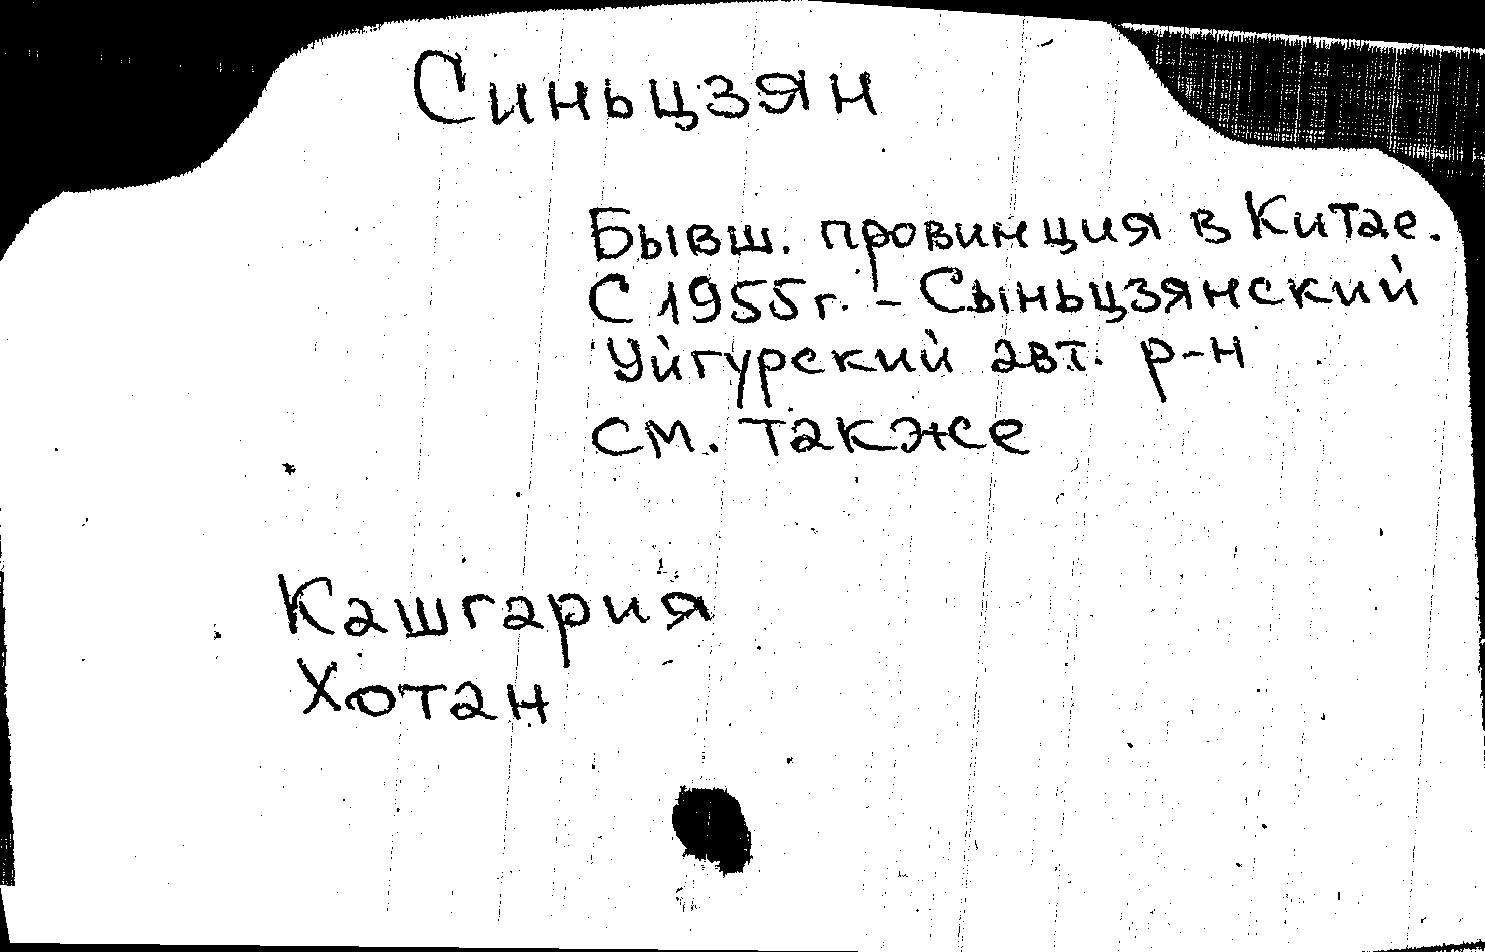 Синьцзян
Бывш. провинция в Китае.
С 1955г. - Сыньцзянский
Уйгурский авт. р-н
см. также
Кашгария
Хотан